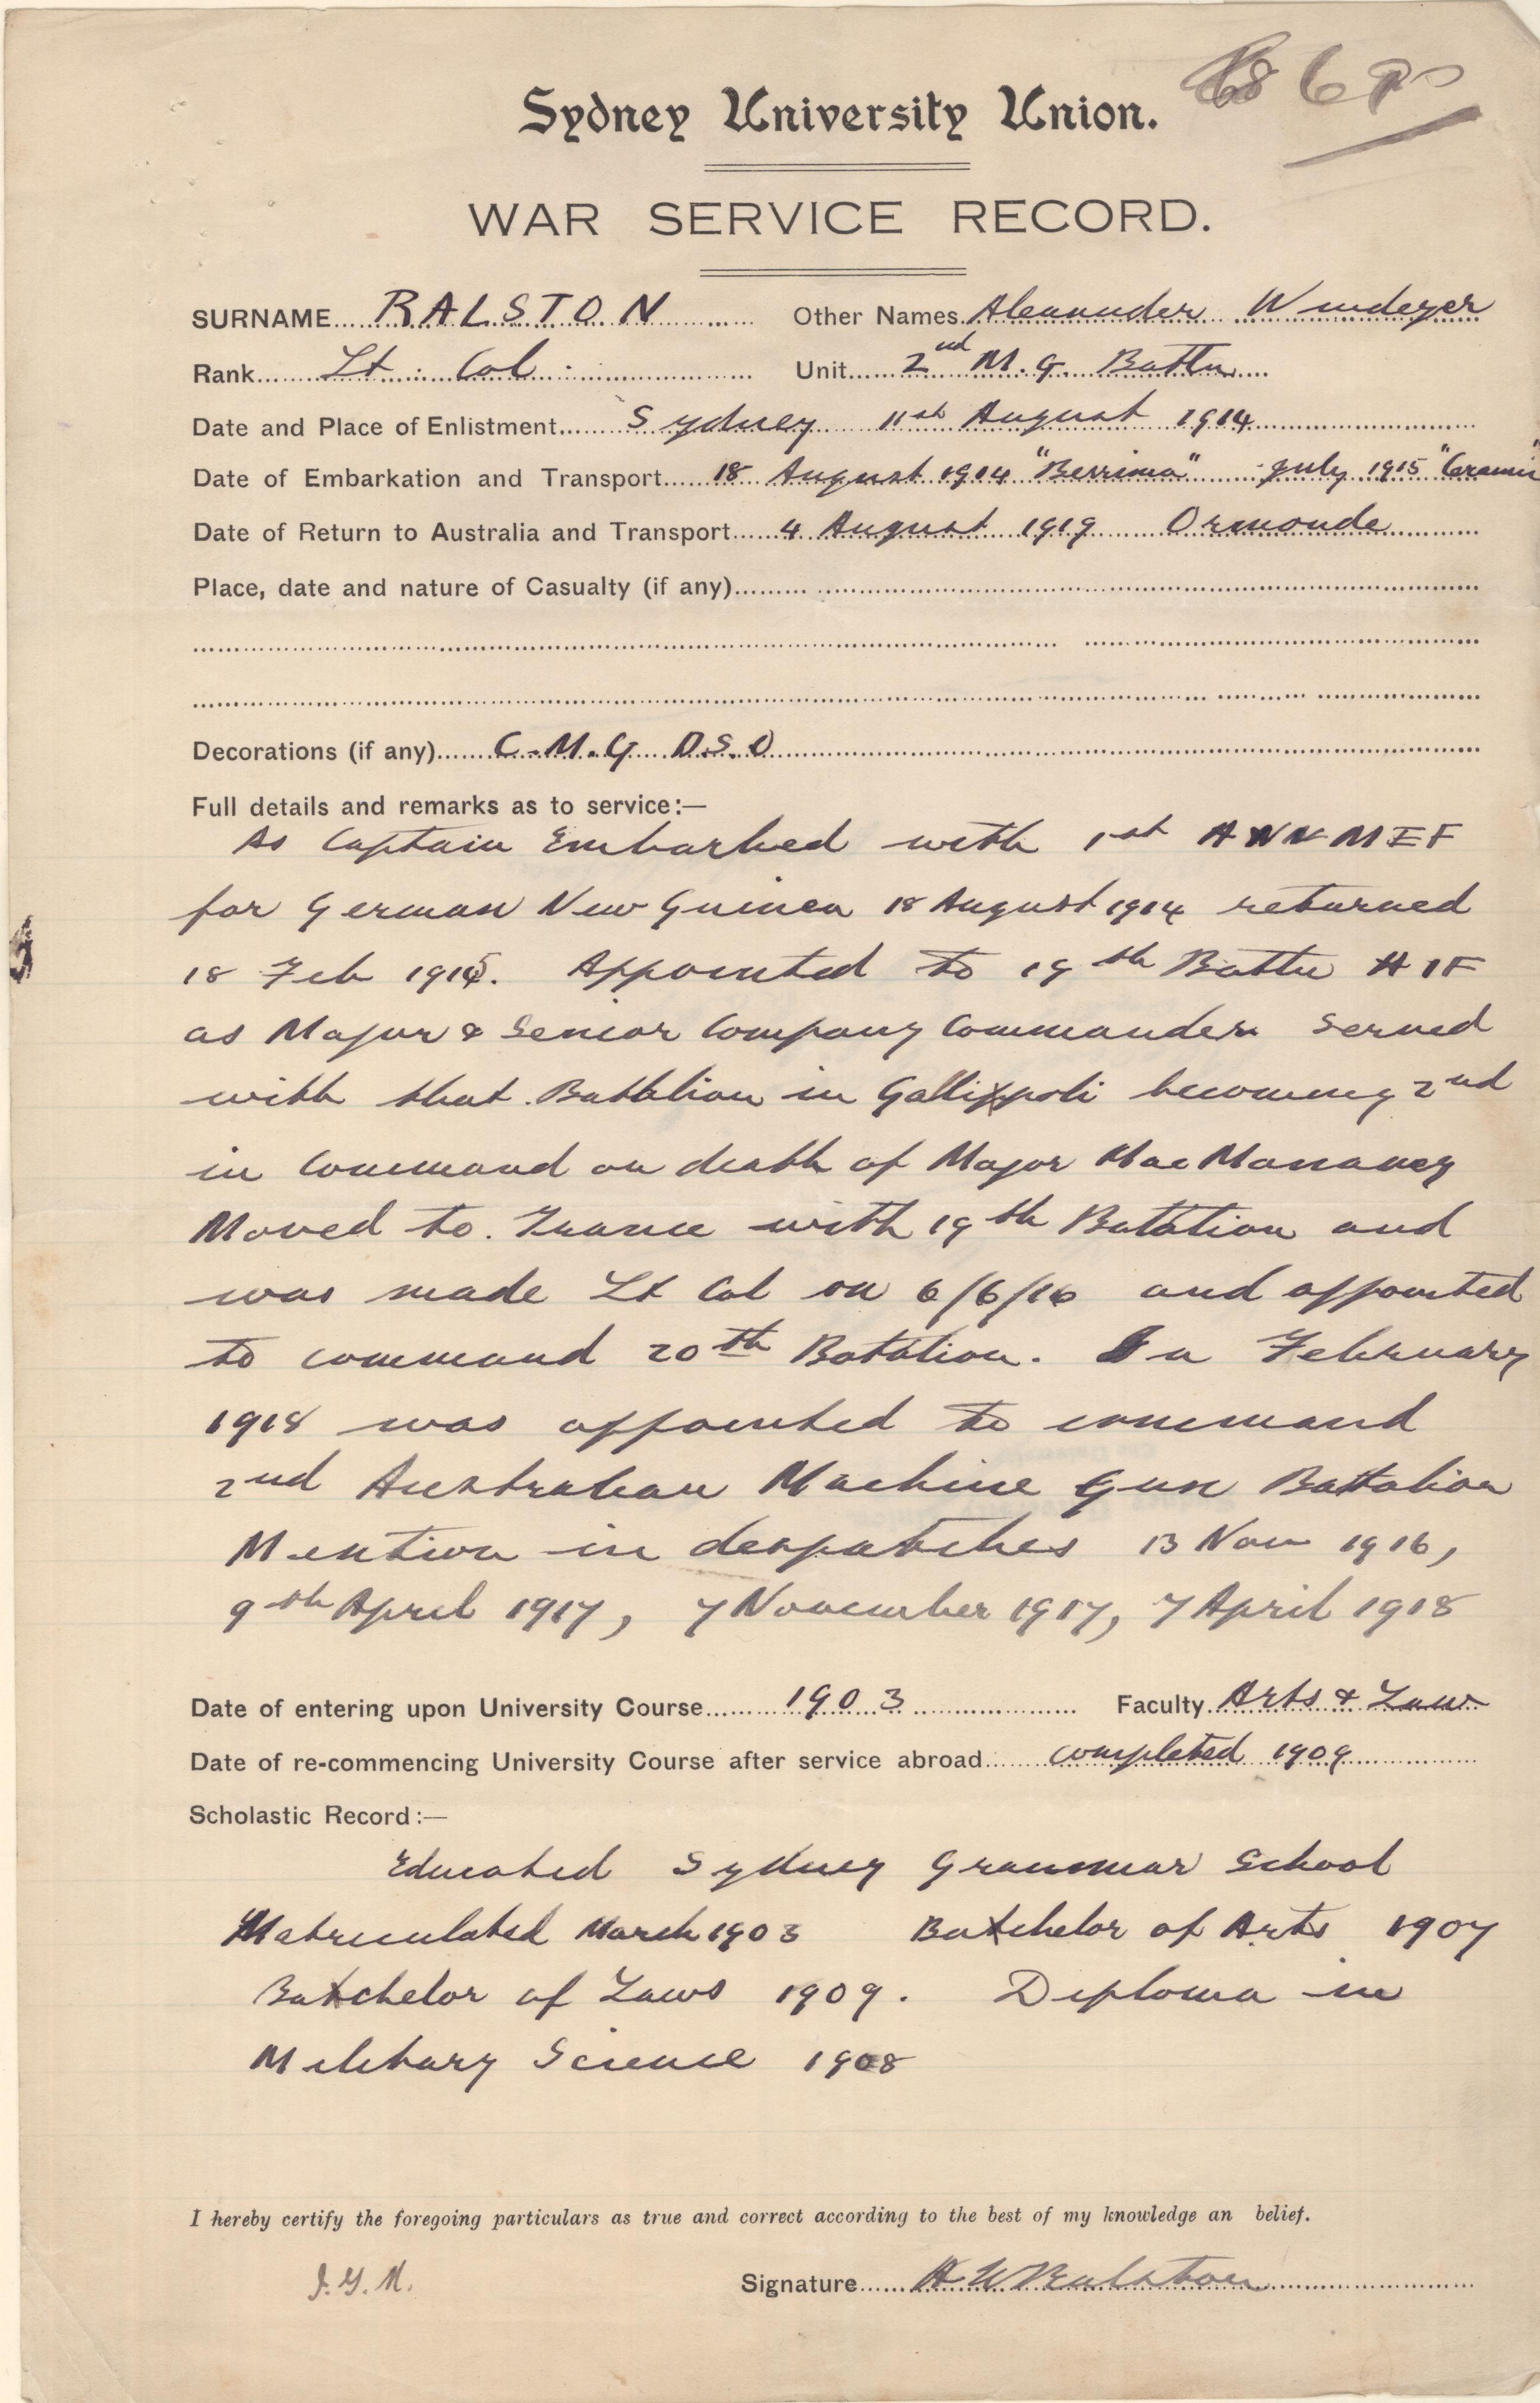 Sydney University Union.
WAR SERVICE RECORD.
SURNAME RALSTON Other Names Alexander Windeyer
Rank Lt. Col. Unit 2nd M.G. Battn
Date and Place of Enlistment Sydney 11th August 1914
Date of Embarkation and Transport 18 August 1914 "Berrima" July 1915 "Ceramic"
Date of Return to Australia and Transport 4 August 1919 Ormonde
Place, date and nature of Casualty (if any)
Decorations (if any) C.M.G D.S.O
Full details and remarks as to service:—
As Captain Embarked with 1st ANNMEF
for German New Guinea 18 August 1914 returned
18 Feb 1915. Appointed to 19th Battn AIF
as Major & Senior Company Commander Served
with that Battalion in Gallipoli becoming 2nd
in Command on death of Major MacManamey
Moved to France with 19th Batation and
was made Lt Col on 6/6/16 and appointed
to command 20th Batation. In February
1918 was appointed to command
2nd Australian Machine Gun Battalion
Mention in despatches 13 Nov 1916,
9th April 1917, 7 November 1917, 7 April 1918
Date of entering upon University Course 1903 Faculty Arts & Law
Date of re-commencing University Course after service abroad completed 1909
Scholastic Record:—
Educated Sydney Grammar School
Matriculated March 1903 Batchelor of Arts 1907
Batchelor of Laws 1909. Diploma in
Military Science 1908
I hereby certify the foregoing particulars as true and correct according to the best of my knowledge an belief.
Signature A W Ralston